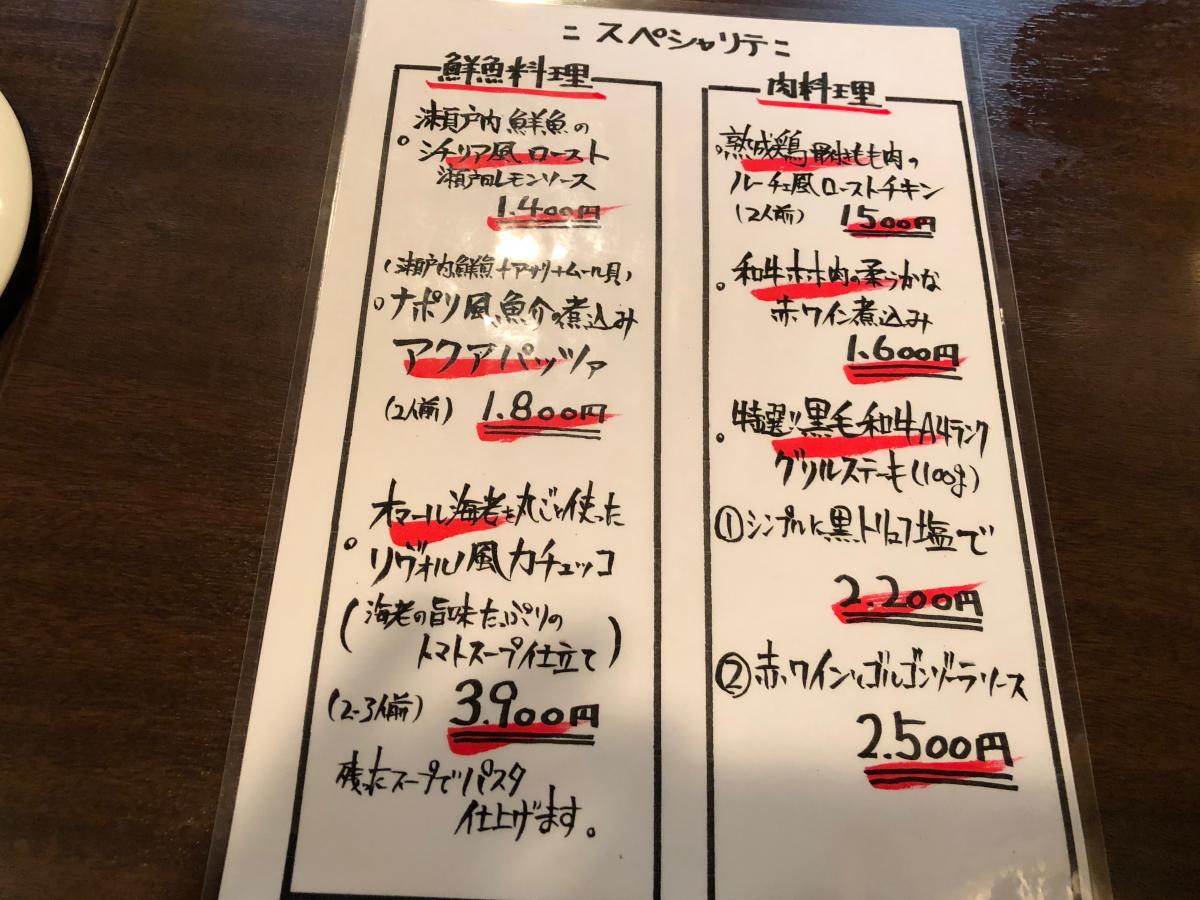 = スペシャリテ =
鮮魚料理
瀬戸内鮮魚の
シチリア風ロースト
瀬戸内レモンソース
1.400円
(瀬戸内鮮魚+アサリ+ムール貝)
ナポリ風魚介の煮込み
アクアパッツァ
(2人前) 1.800円
オマール海老を丸ごと使った
リヴォルノ風カチュッコ
(海老の旨味たっぷりの
トマトスープ仕立て)
(2-3人前) 3.900円
残ったスープでパスタ
仕上げます。
肉料理
熟成鶏骨付きもも肉の
ルーチェ風ローストチキン
(2人前) 1500円
和牛ホホ肉の柔らかな
赤ワイン煮込み
1.600円
特選!!黒毛和牛A4ランク
グリルステーキ(100g)
①シンプルに黒トリュフ塩で
2.200円
②赤ワインとゴルゴンゾーラソース
2.500円